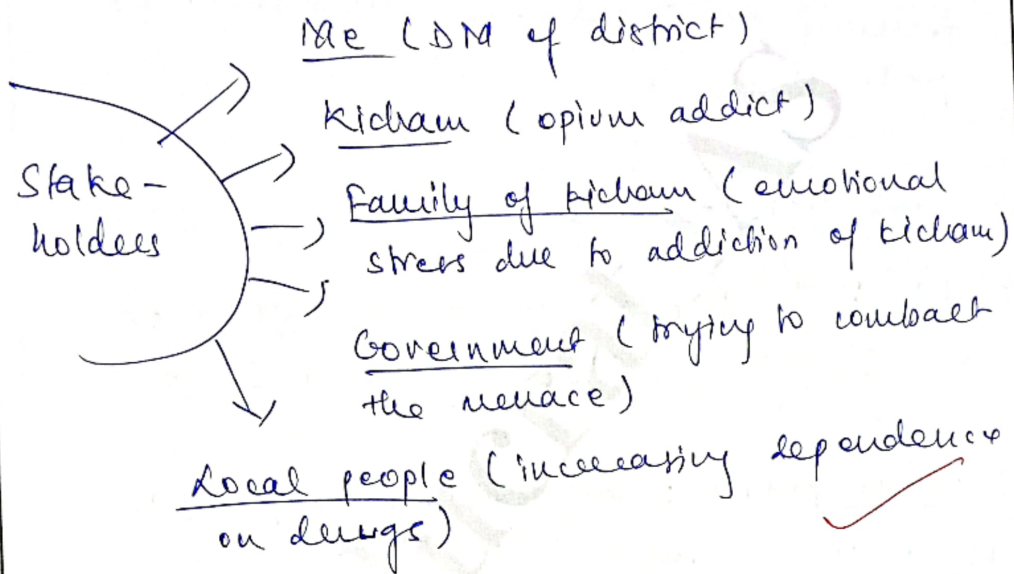 Me (DM of district)
Kicham (opium addict)
Stake-
holders
Family of Kicham (emotional
stress due to addiction of Kicham)
Government (trying to combact
the menace)
Local people (increasing dependence
on drugs)